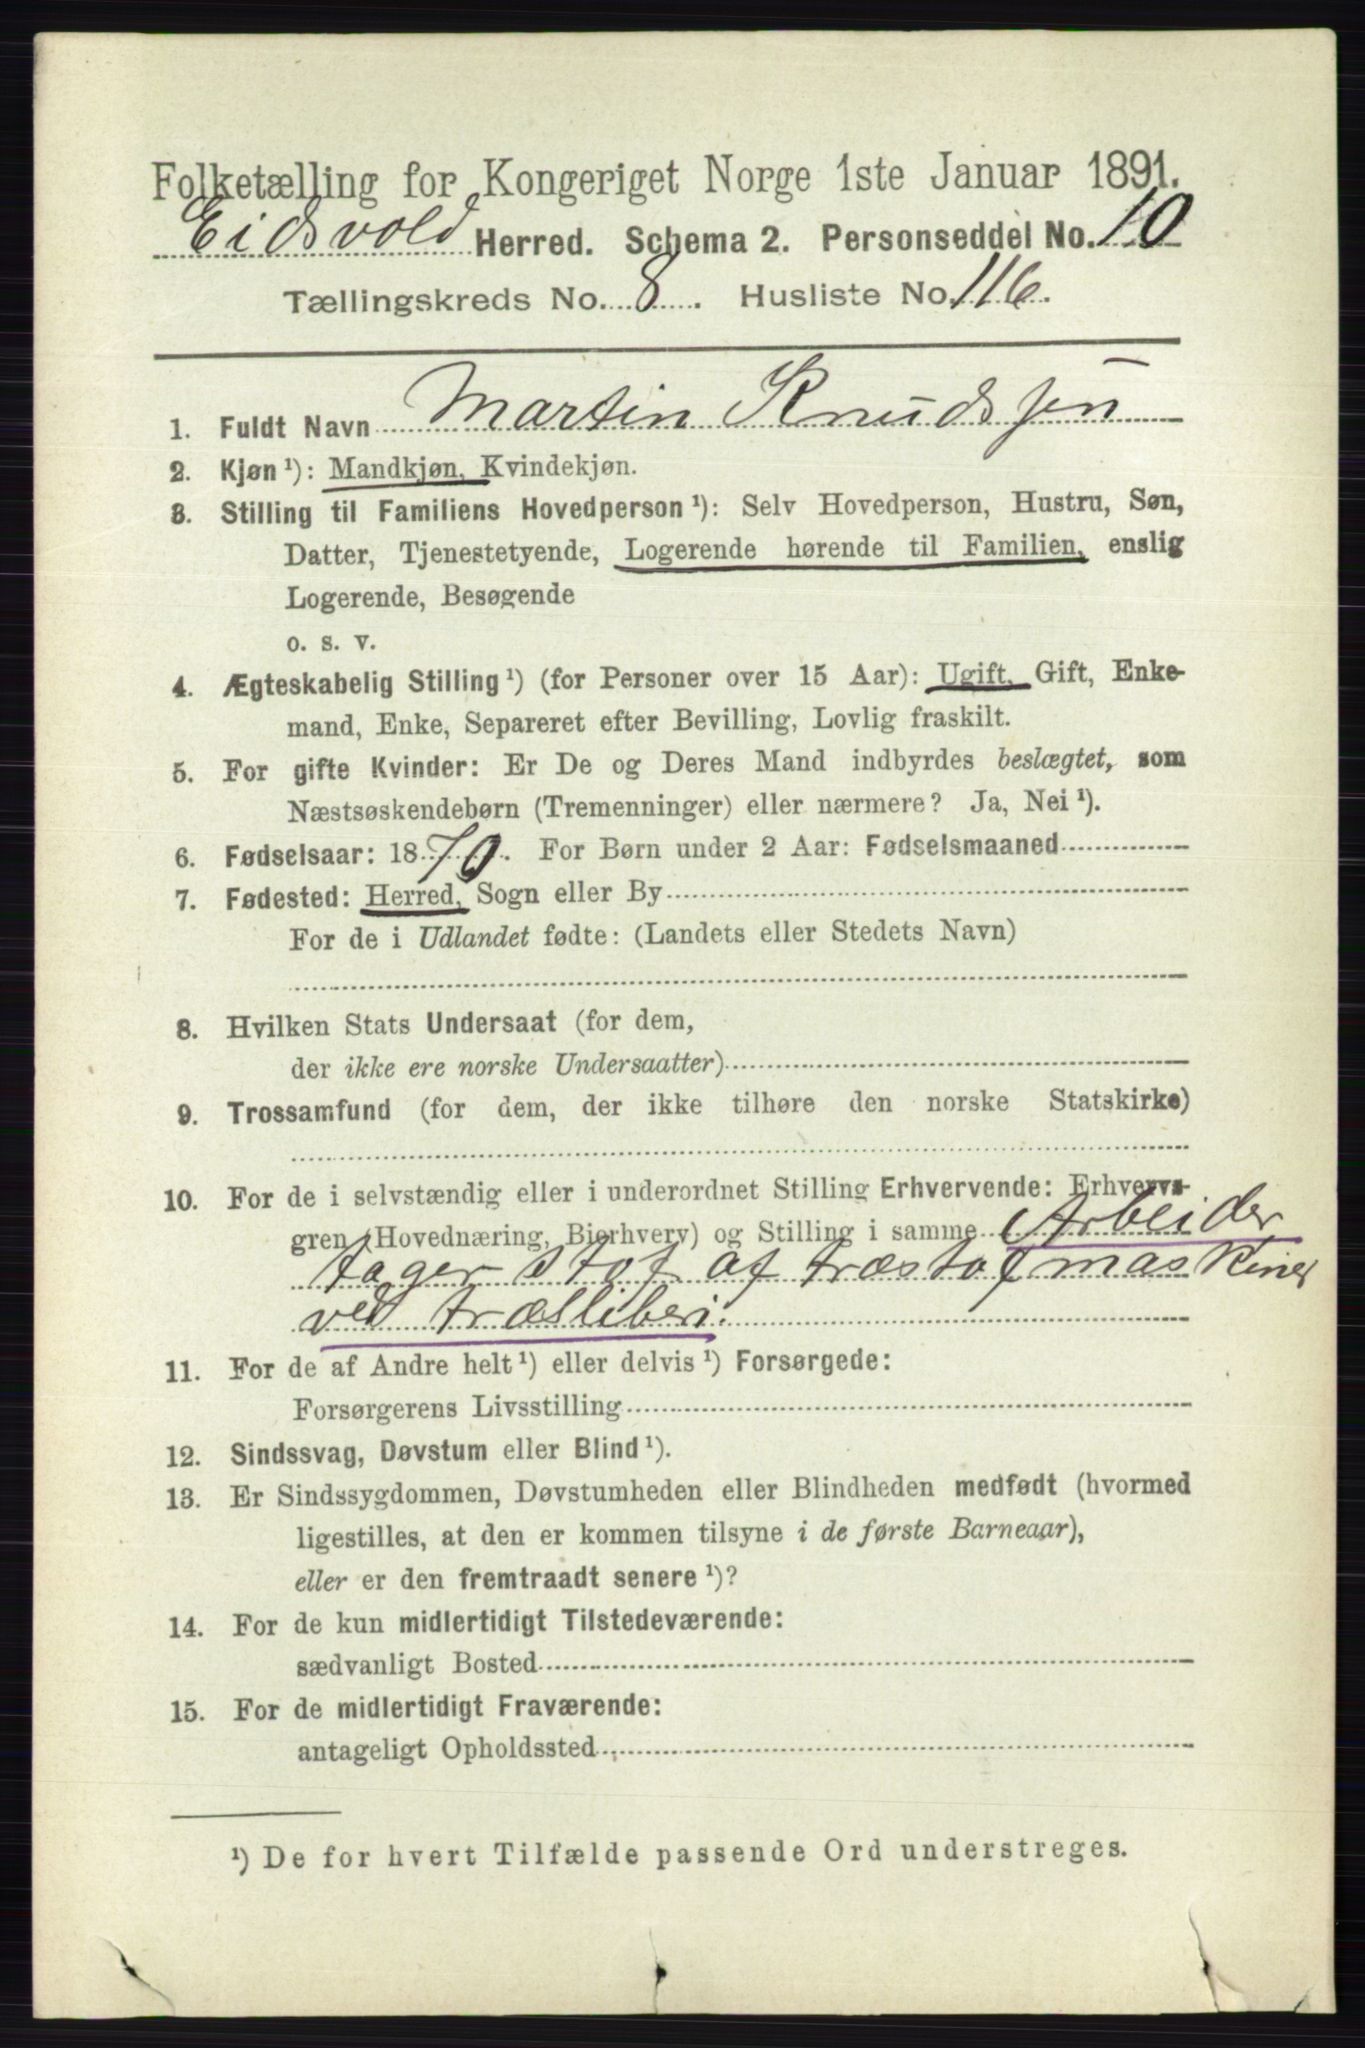 Folketælling for Kongeriget Norge 1ste Januar 1891.
Eidsvold Herred. Schema 2. Personseddel No. 10
Tællingskreds No. 8. Husliste No. 116.
1. Fuldt Navn Martin Knudssen
2. Kjøn ¹): Mandkjøn, Kvindekjøn.
3. Stilling til Familiens Hovedperson ¹): Selv Hovedperson, Hustru, Søn,
Datter, Tjenestetyende, Logerende hørende til Familien, enslig
Logerende, Besøgende
o. s. v.
4. Ægteskabelig Stilling ¹) (for Personer over 15 Aar): Ugift, Gift, Enke-
mand, Enke, Separeret efter Bevilling, Lovlig fraskilt.
5. For gifte Kvinder: Er De og Deres Mand indbyrdes beslægtet, som
Næstsøskendebørn (Tremenninger) eller nærmere? Ja, Nei ¹).
6. Fødselsaar: 1870. For Børn under 2 Aar: Fødselsmaaned
7. Fødested: Herred, Sogn eller By
For de i Udlandet fødte: (Landets eller Stedets Navn)
8. Hvilken Stats Undersaat (for dem,
der ikke ere norske Undersaatter)
9. Trossamfund (for dem, der ikke tilhøre den norske Statskirke)
10. For de i selvstændig eller i underordnet Stilling Erhvervende: Erhvervs-
gren (Hovednæring, Bierhverv) og Stilling i samme Arbeider
tager stof af træstofmaskiner
ved træsliberi.
11. For de af Andre helt ¹) eller delvis ¹) Forsørgede:
Forsørgerens Livsstilling
12. Sindssvag, Døvstum eller Blind ¹).
13. Er Sindssygdommen, Døvstumheden eller Blindheden medfødt (hvormed
ligestilles, at den er kommen tilsyne i de første Barneaar),
eller er den fremtraadt senere ¹)?
14. For de kun midlertidigt Tilstedeværende:
sædvanligt Bosted
15. For de midlertidigt Fraværende:
antageligt Opholdssted
¹) De for hvert Tilfælde passende Ord understreges.